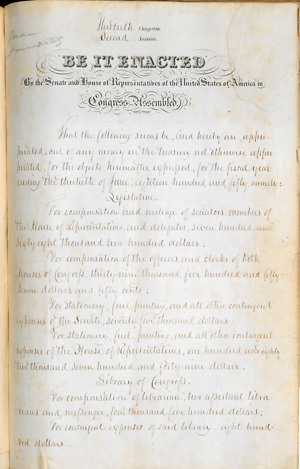 Thirtieth Congress
Second Session
BE IT ENACTED
By the Senate and House of Representatives of the United States of America in
Congress Assembled,
That the following sums be, and hereby are appro-
priated, out of any money in the treasury not otherwise appro-
priated, for the objects hereinafter expressed, for the fiscal year
ending the thirtieth of June, eighteen hundred and fifty, namely:
Legislative.
For compensation and mileage of senators, members of
the House of Representatives, and delegates, seven hundred and
sixty-eight thousand two hundred dollars;
For compensation of the officers and clerks of both
Houses of Congress, thirty-nine thousand five hundred and fifty-
dollars and fifty cents;
For stationery, fuel, printing, and all other contingent
expenses of the Senate, seventy-five thousand dollars;
For stationery, fuel, printing, and all other contingent
expenses of the House of Representatives, one hundred and eighty
two thousand seven hundred and forty-nine dollars.
Library of Congress.
For compensation of librarian, two assistant libra-
rians and messenger, four thousand five hundred dollars;
For contingent expenses of said library, eight hund-
red dollars.